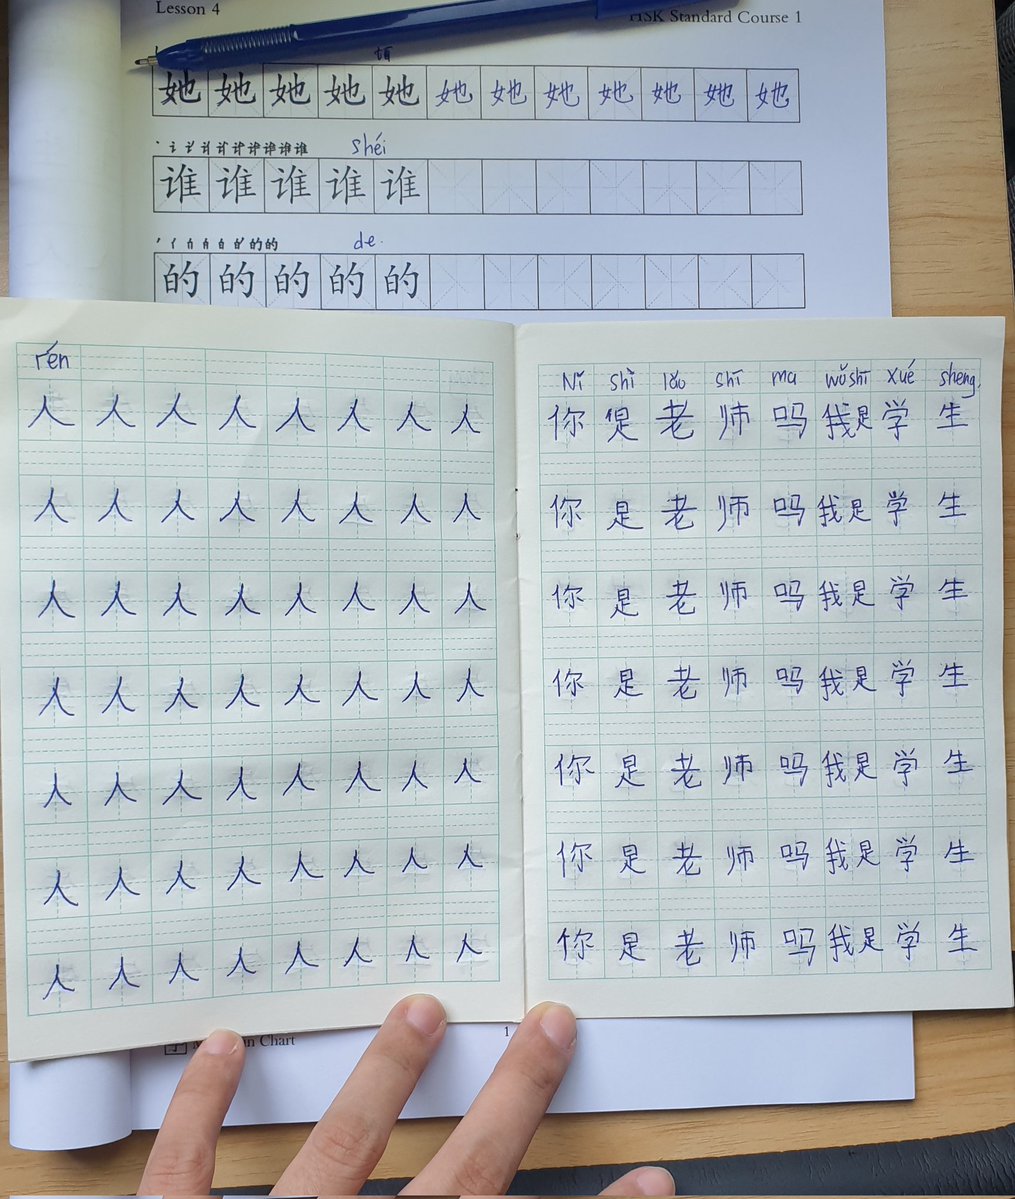 Lesson 4
HSK Standard Course 1
她 她 她 她 她 她 她 她 她 她 她 她
shéi
谁 谁 谁 谁 谁
de
的 的 的 的 的
rén
人 人 人 人 人 人 人 人
人 人 人 人 人 人 人 人
人 人 人 人 人 人 人 人
人 人 人 人 人 人 人 人
人 人 人 人 人 人 人 人
人 人 人 人 人 人 人 人
人 人 人 人 人 人 人 人
Nǐ shì lǎo shī ma wǒ shì xué sheng
你 是 老 师 吗 我 是 学 生
你 是 老 师 吗 我 是 学 生
你 是 老 师 吗 我 是 学 生
你 是 老 师 吗 我 是 学 生
你 是 老 师 吗 我 是 学 生
你 是 老 师 吗 我 是 学 生
你 是 老 师 吗 我 是 学 生
Chart
1